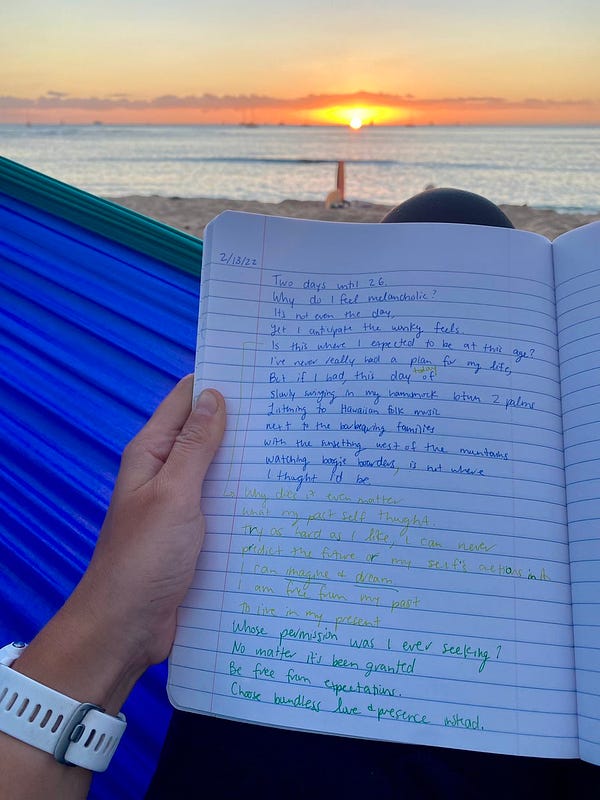 2/13/22
Two days until 26.
Why do I feel melancholic?
Its not even the day,
yet I anticipate the wonky feels.
Is this where I expected to be at this age?
I've never really had a plan for my life,
But if I had, this day of today
slowly swinging in my hammock btwn 2 palms
Listening to Hawaiian folk music
next to the barbequing families
with the sunsetting west of the mountains
watching boogie boarders, is not where
I thought I'd be.
Why does it even matter
what my past self thought.
Try as hard as I like, I can never
predict the future or my self's actions in it
I can imagine & dream
I am free from my past
To live in my present
Whose permission was I ever seeking?
No matter it's been granted
Be free from expectations.
Choose boundless love & presence instead.